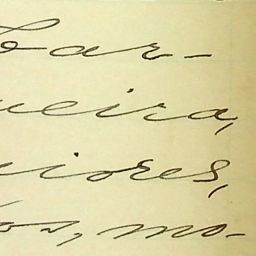 bar-
ueira,
iores,
os, mo-